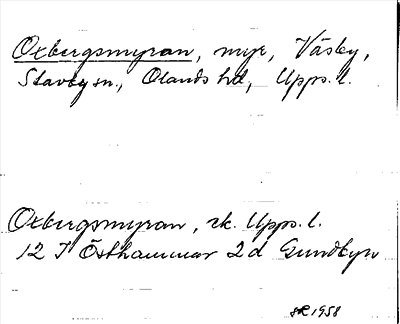 Oxbergsmyran, myr, Väsby,
Stavby sn., Olands hd, Upps. l.
Oxbergsmyran, rk. Upps. l.
12 I Östhammar 2 d Gundbyn
SR 1958